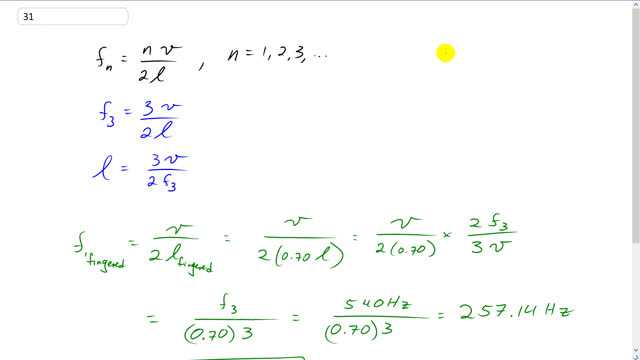 31
f_n = n v / 2 l , n = 1, 2, 3, ...
f_3 = 3 v / 2 l
l = 3 v / 2 f_3
f_1 fingered = v / 2 l_fingered = v / 2 (0.70 l) = v / 2 (0.70) × 2 f_3 / 3 v
= f_3 / (0.70) 3 = 540 Hz / (0.70) 3 = 257.14 Hz